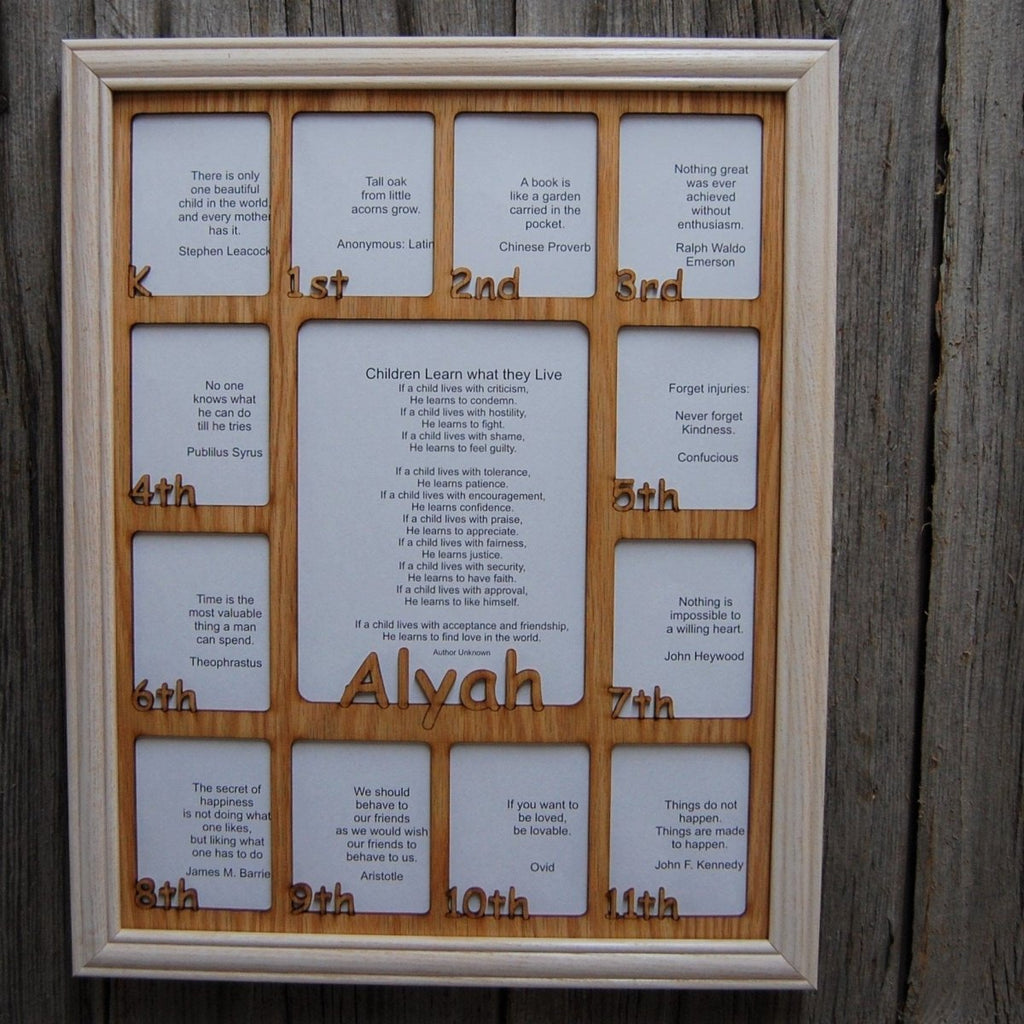 There is only
one beautiful
child in the world,
and every mother
has it.
Stephen Leacock
K
Tall oak
from little
acorns grow.
Anonymous: Latin
1st
A book is
like a garden
carried in the
pocket.
Chinese Proverb
2nd
Nothing great
was ever
achieved
without
enthusiasm.
Ralph Waldo
Emerson
3rd
No one
knows what
he can do
till he tries
Publilus Syrus
4th
Children Learn what they Live
If a child lives with criticism,
He learns to condemn.
If a child lives with hostility,
He learns to fight.
If a child lives with shame,
He learns to feel guilty.
If a child lives with tolerance,
He learns patience.
If a child lives with encouragement,
He learns confidence.
If a child lives with praise,
He learns to appreciate.
If a child lives with fairness,
He learns justice.
If a child lives with security,
He learns to have faith.
If a child lives with approval,
He learns to like himself.
If a child lives with acceptance and friendship,
He learns to find love in the world.
Author Unknown
Alyah
Forget injuries:
Never forget
Kindness.
Confucious
5th
Time is the
most valuable
thing a man
can spend.
Theophrastus
6th
Nothing is
impossible to
a willing heart.
John Heywood
7th
The secret of
happiness
is not doing what
one likes,
but liking what
one has to do
James M. Barrie
8th
We should
behave to
our friends
as we would wish
our friends to
behave to us.
Aristotle
9th
If you want to
be loved,
be lovable.
Ovid
10th
Things do not
happen.
Things are made
to happen.
John F. Kennedy
11th